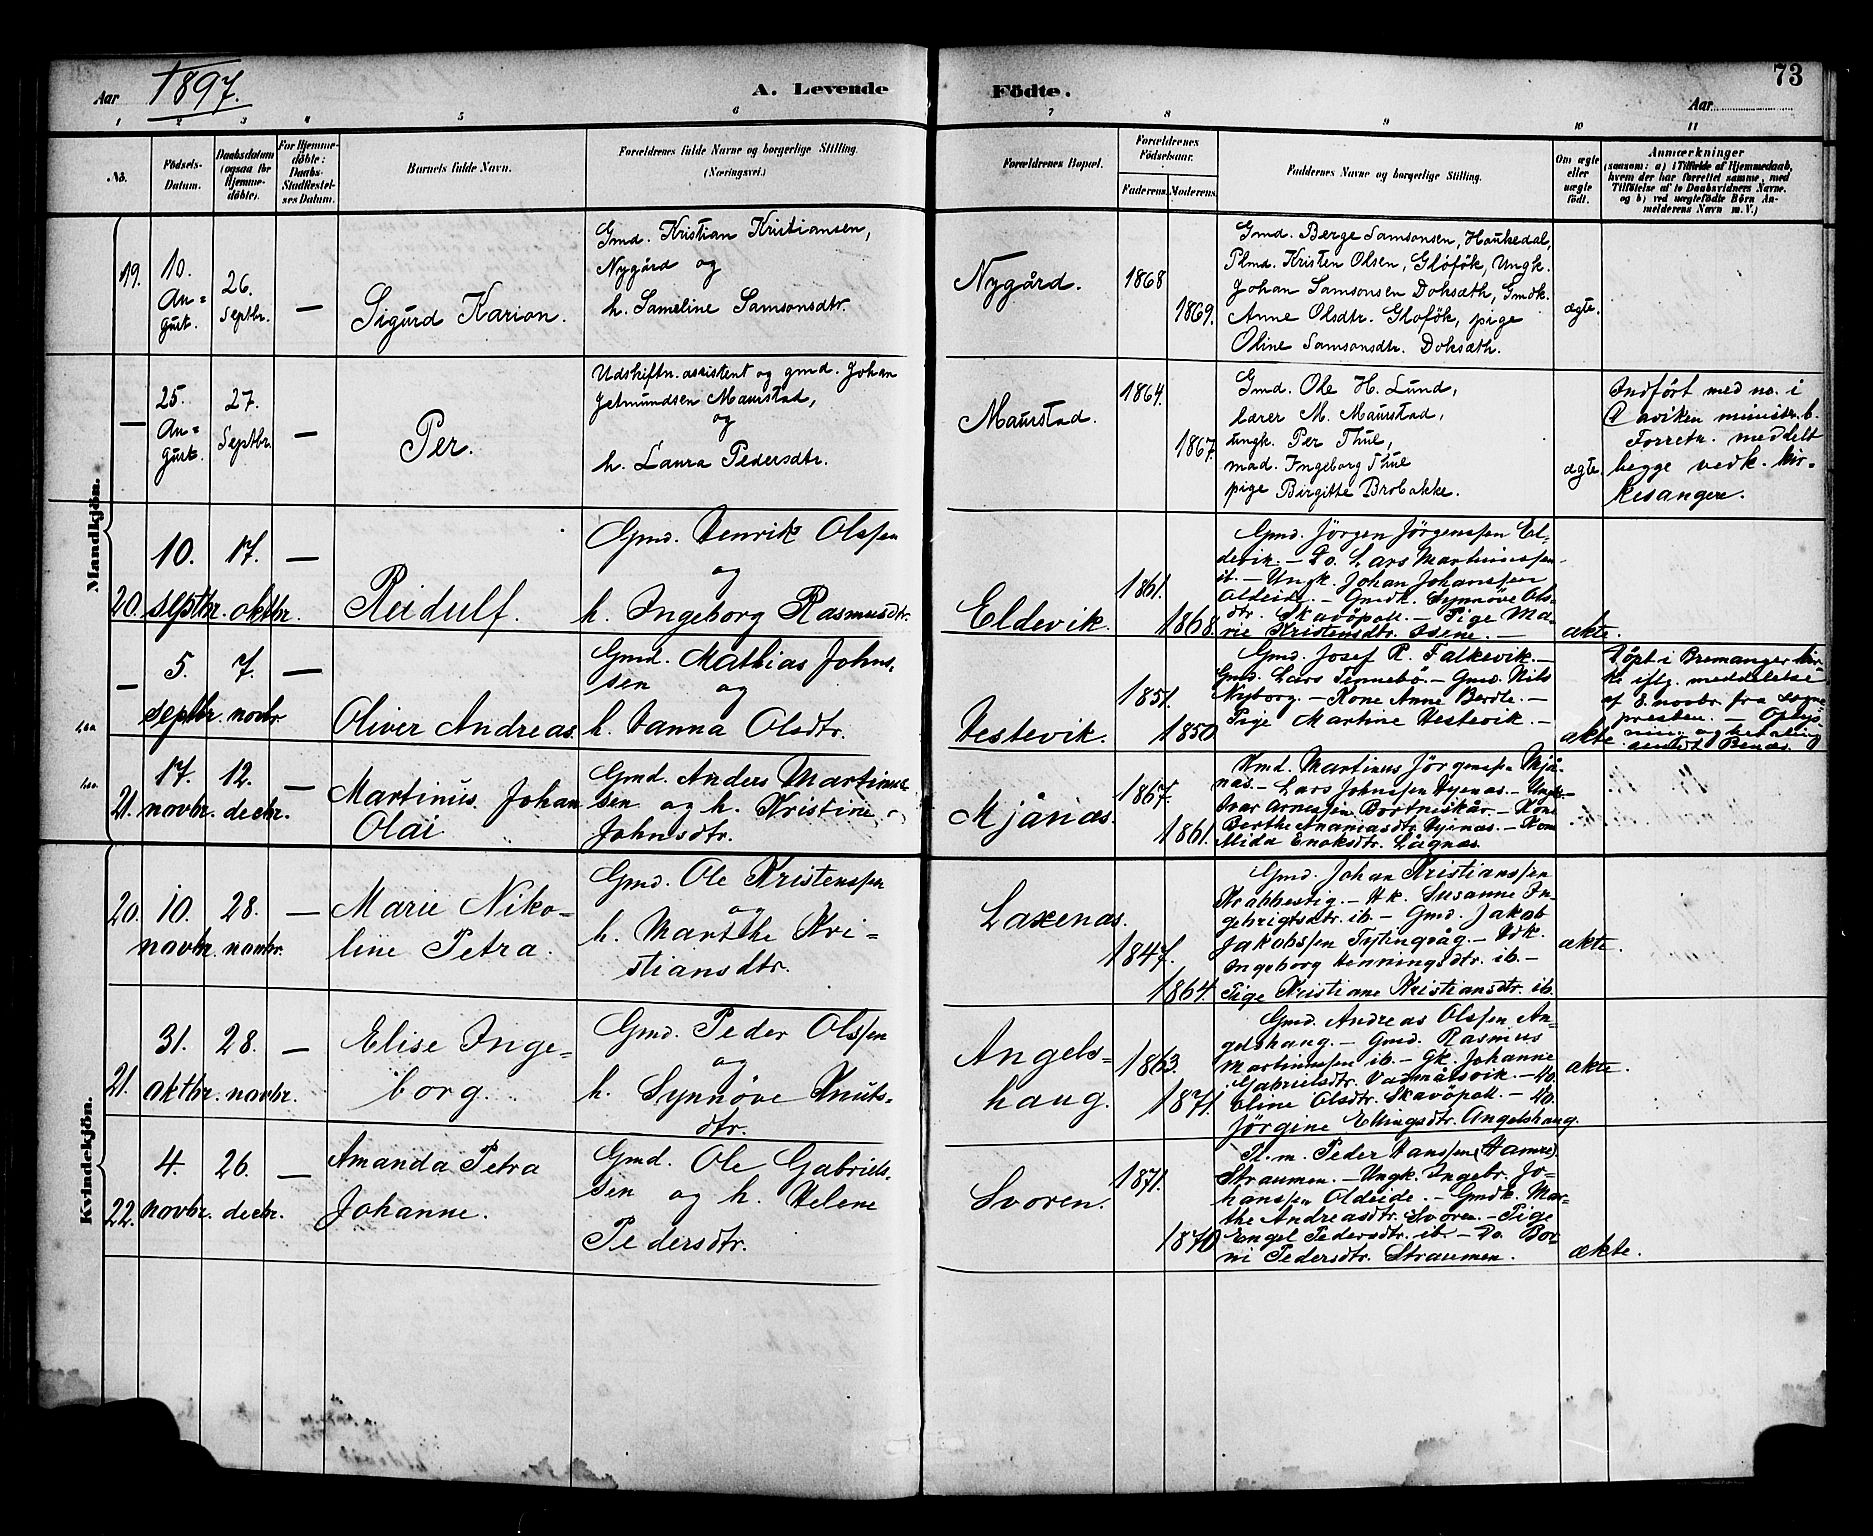 73
Aar 1897.
A. Levende Födte.
Aar
1 2 3 4 5 6 7 8 9 10 11
No.
Födsels-Datum.
Daabsdatum (ogsaa for Hjemmedöbte).
For Hjemmedöbte: Daabs-Stadfestelses Datum.
Barnets fulde Navn.
Forældrenes fulde Navne og borgerlige Stilling.
(Næringsvei.)
Forældrenes Bopæl.
Forældrenes Födselsaar.
Faderens. Moderens.
Faddernes Navne og borgerlige Stilling.
Om ægte eller uægte födt.
Anmærkninger
(saasom: a) i Tilfælde af Hjemmedaab, hvem der har forrettet samme, med Tilföielse af to Daabsvidners Navne. og b) ved uægtefödte Börn Anmelderens Navn m. V.)
Mandkjön.
19.
10. August.
26. Septbr.
—
Sigurd Karion.
Gmd. Kristian Kristiansen,
Nygård og
h. Sameline Samsonsdtr.
Nygård.
1868
1869.
Gmd. Berge Samsonsen, Haukedal,
Plmd. Kristen Olsen, Gloføk, Ungk.
Johan Samsonsen Doksæth, Gmdk.
Anne Olsdtr. Gloføk, pige
Oline Samsonsdtr. Doksæth.
ægte.
—
25. August.
27. Septbr.
—
Per.
Udskiftn. assistent og gmd. Johan
Jetmundsen Maurstad,
og
h. Laura Pedersdtr.
Maurstad.
1864.
1867.
Gmd. Ole H. Lund,
lærer M. Maurstad,
ungk. Per Thue,
mad. Ingeborg Thue
pige Birgitte Brobakke.
ægte.
Indført med no. i
Daviken ministr. b.
Forretn. meddelt
begge vedk. kir-
kesangere.
20.
10. septbr.
17. oktbr.
—
Reidulf.
Gmd. Henrik Olssen
og
h. Ingeborg Rasmusdtr.
Eldevik.
1861.
1868.
Gmd. Jörgen Jörgenssen El-
devik. — Do. Lars Martinussen
ib. — Ungk. Johan Johanssen
Oldeide. — Gmdk. Synnöve Ols-
dtr. Skavöpoll. — Pige Ma-
rie Kristensdtr. Isene. —
ækte.
—
5. septbr.
7. novbr.
—
Oliver Andreas.
Gmd. Mathias Johns-
sen og
h. Hanna Olsdtr.
Vestevik.
1851.
1850.
Gmd. Josef R. Falkevik. —
Gmd. Lars Tennebö. — Gmd. Nils
Nyborg. — Kone Anne Berdle. —
Pige Martine Vestevik. —
ækte
Döpt i Bremanger kir-
ke iflg. meddelelse
af 8. novbr. fra sogne-
presten. — Oplys-
ning og betaling
21.
17. novbr.
12. decbr.
—
Martinus Johan
Olai
Gmd. Anders Martinus-
sen og h. Kristine
Johnsdtr.
Mjånæs.
1867.
1861.
Kmd. Martinus Jörgenssen Mjå-
næs. — Lars Johnssen Hyenæs. — Ungk.
Ivar Arnessen Bortneskår. — Kone
Berthe Ananiasdtr. Hyenæs. — Kone
Alida Enoksdtr. Lågnæs.
Kvindekjön.
20.
10. novbr.
28. novbr.
—
Marie Niko-
line Petra.
Gmd. Ole Kristenssen
og
h. Marthe Kri-
stiansdtr.
Laxenæs.
1847.
1864.
Gmd. Johan Kristianssen
Krabbestig. — Hk. Susanne In-
gebrigtsdtr. ib. — Gmd. Jakob
Jakobssen Tytingvåg. — Hdk.
Ingeborg Henningsdtr. ib. —
Pige Kristiane Kristiansdtr. ib.
ækte.
21.
31. oktbr.
28. novbr.
—
Elise Inge-
borg.
Gmd. Peder Olssen
og
h. Synnöve Knuts-
dtr.
Angels-
haug.
1863.
1871.
Gmd. Andreas Olssen An-
gelshaug. — Gmd. Rasmus
Martinussen ib. — Gk. Johanne
Gabrielsdtr. Vadmålsvik. — do.
Eline Olsdtr. Skavöpoll. — do.
Jörgine Ellingsdtr. Angelshaug.
ækte.
22.
4. novbr.
26. decbr.
—
Amanda Petra
Johanne.
Gmd. Ole Gabriels-
sen og h. Helene
Pedersdtr.
Svoren.
1871.
1870
Pl.m. Peder Hanssen (Hamre)
Straumen. — Ungk. Ingebr. Jo-
hanssen Oldeide. — Gmdk. Mar-
the Andreasdtr. Svoren. — Pige
Engel Pedersdtr. ib. — Do. Bor-
ni Pedersdtr. Straumen.
ækte.